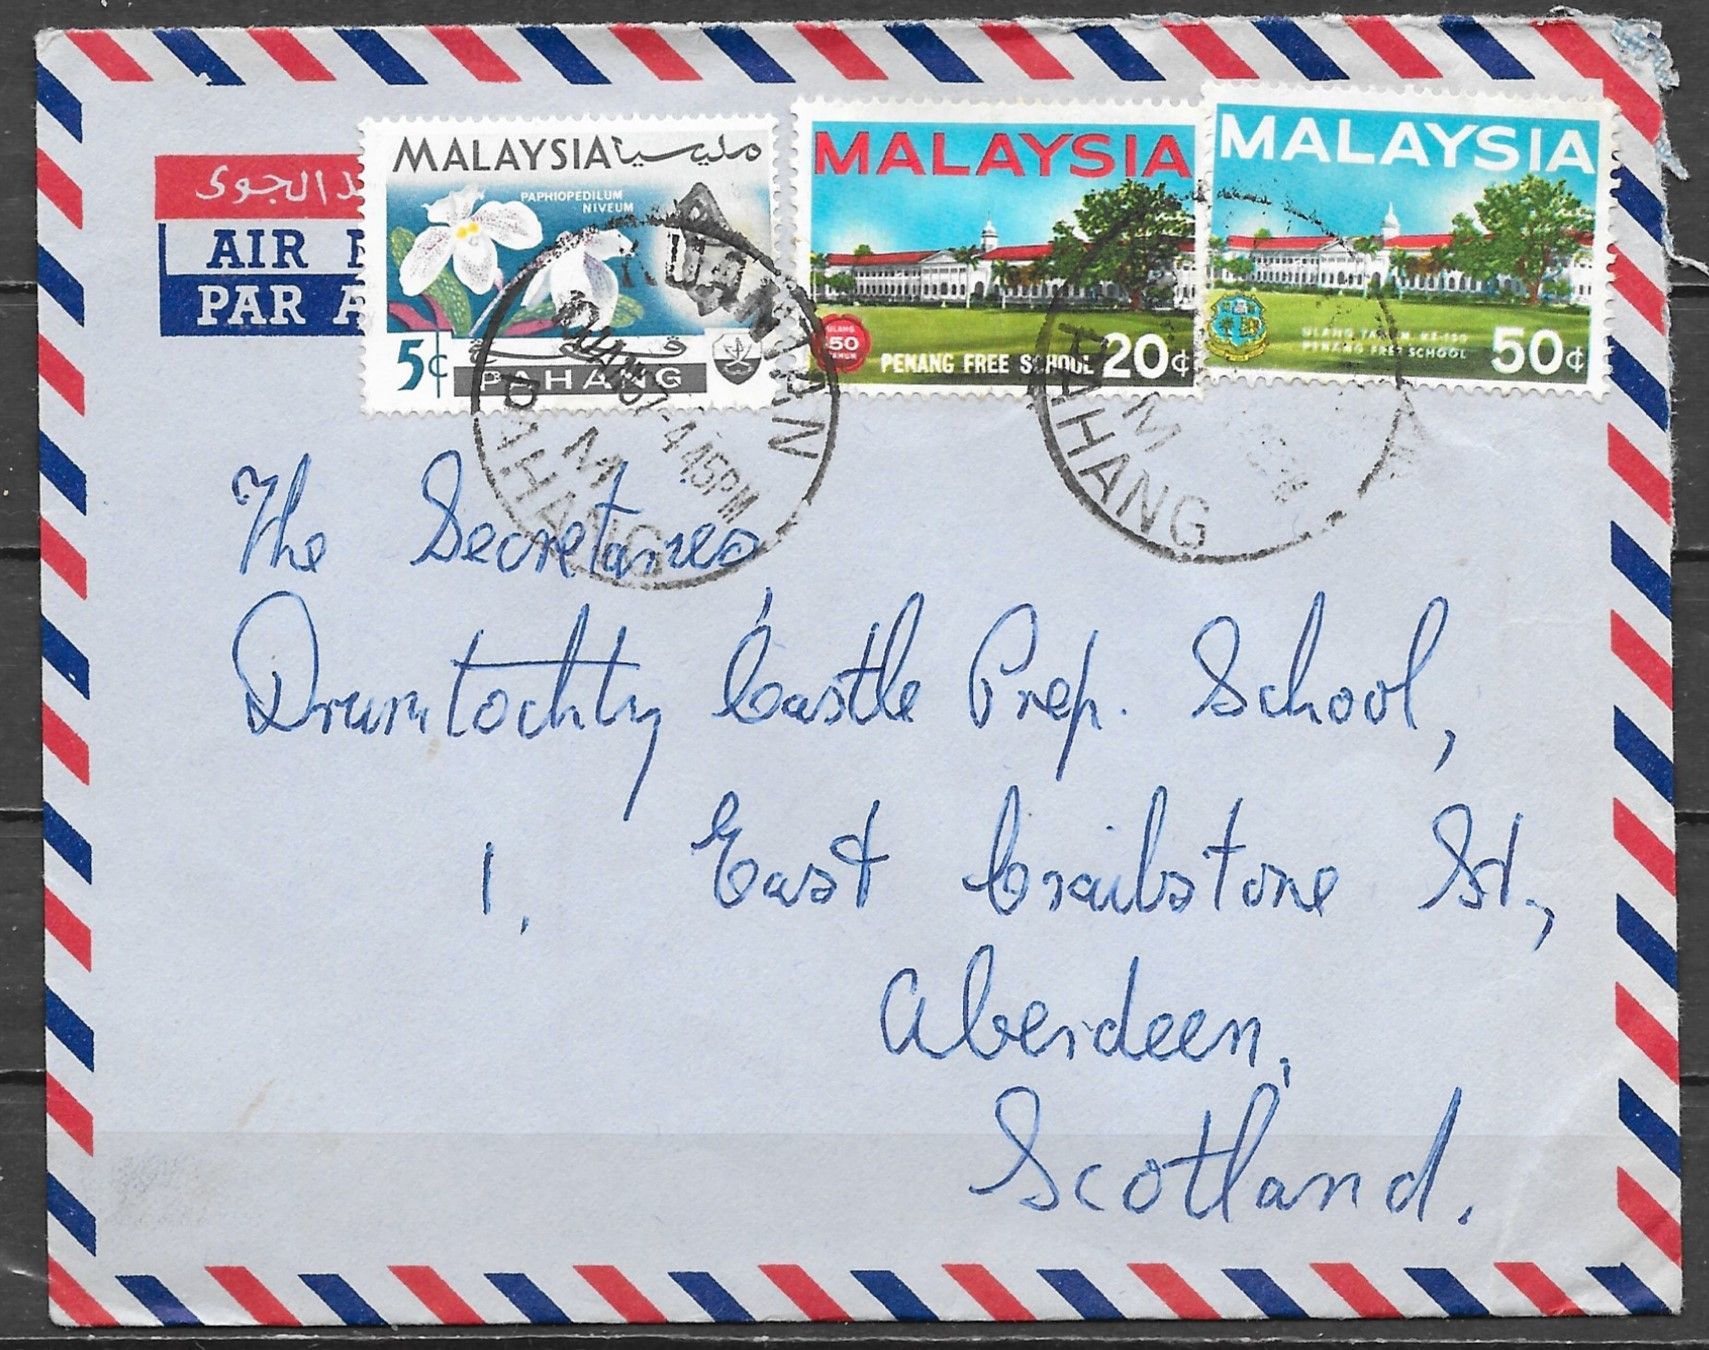 MALAYSIA مليسيا
PAPHIOPEDILUM
NIVEUM
5¢
PAHANG
MALAYSIA
ULANG
150
TAHUN
PENANG FREE SCHOOL 20¢
MALAYSIA
ULANG TAHUN KE-150
PENANG FREE SCHOOL 50¢
AIR
PAR A
KUANTAN
67-4 45PM
M
PAHANG
M
PAHANG
The Secretaries,
Drumtochty Castle Prep. School,
1, East Craibstone St.,
Aberdeen,
Scotland.